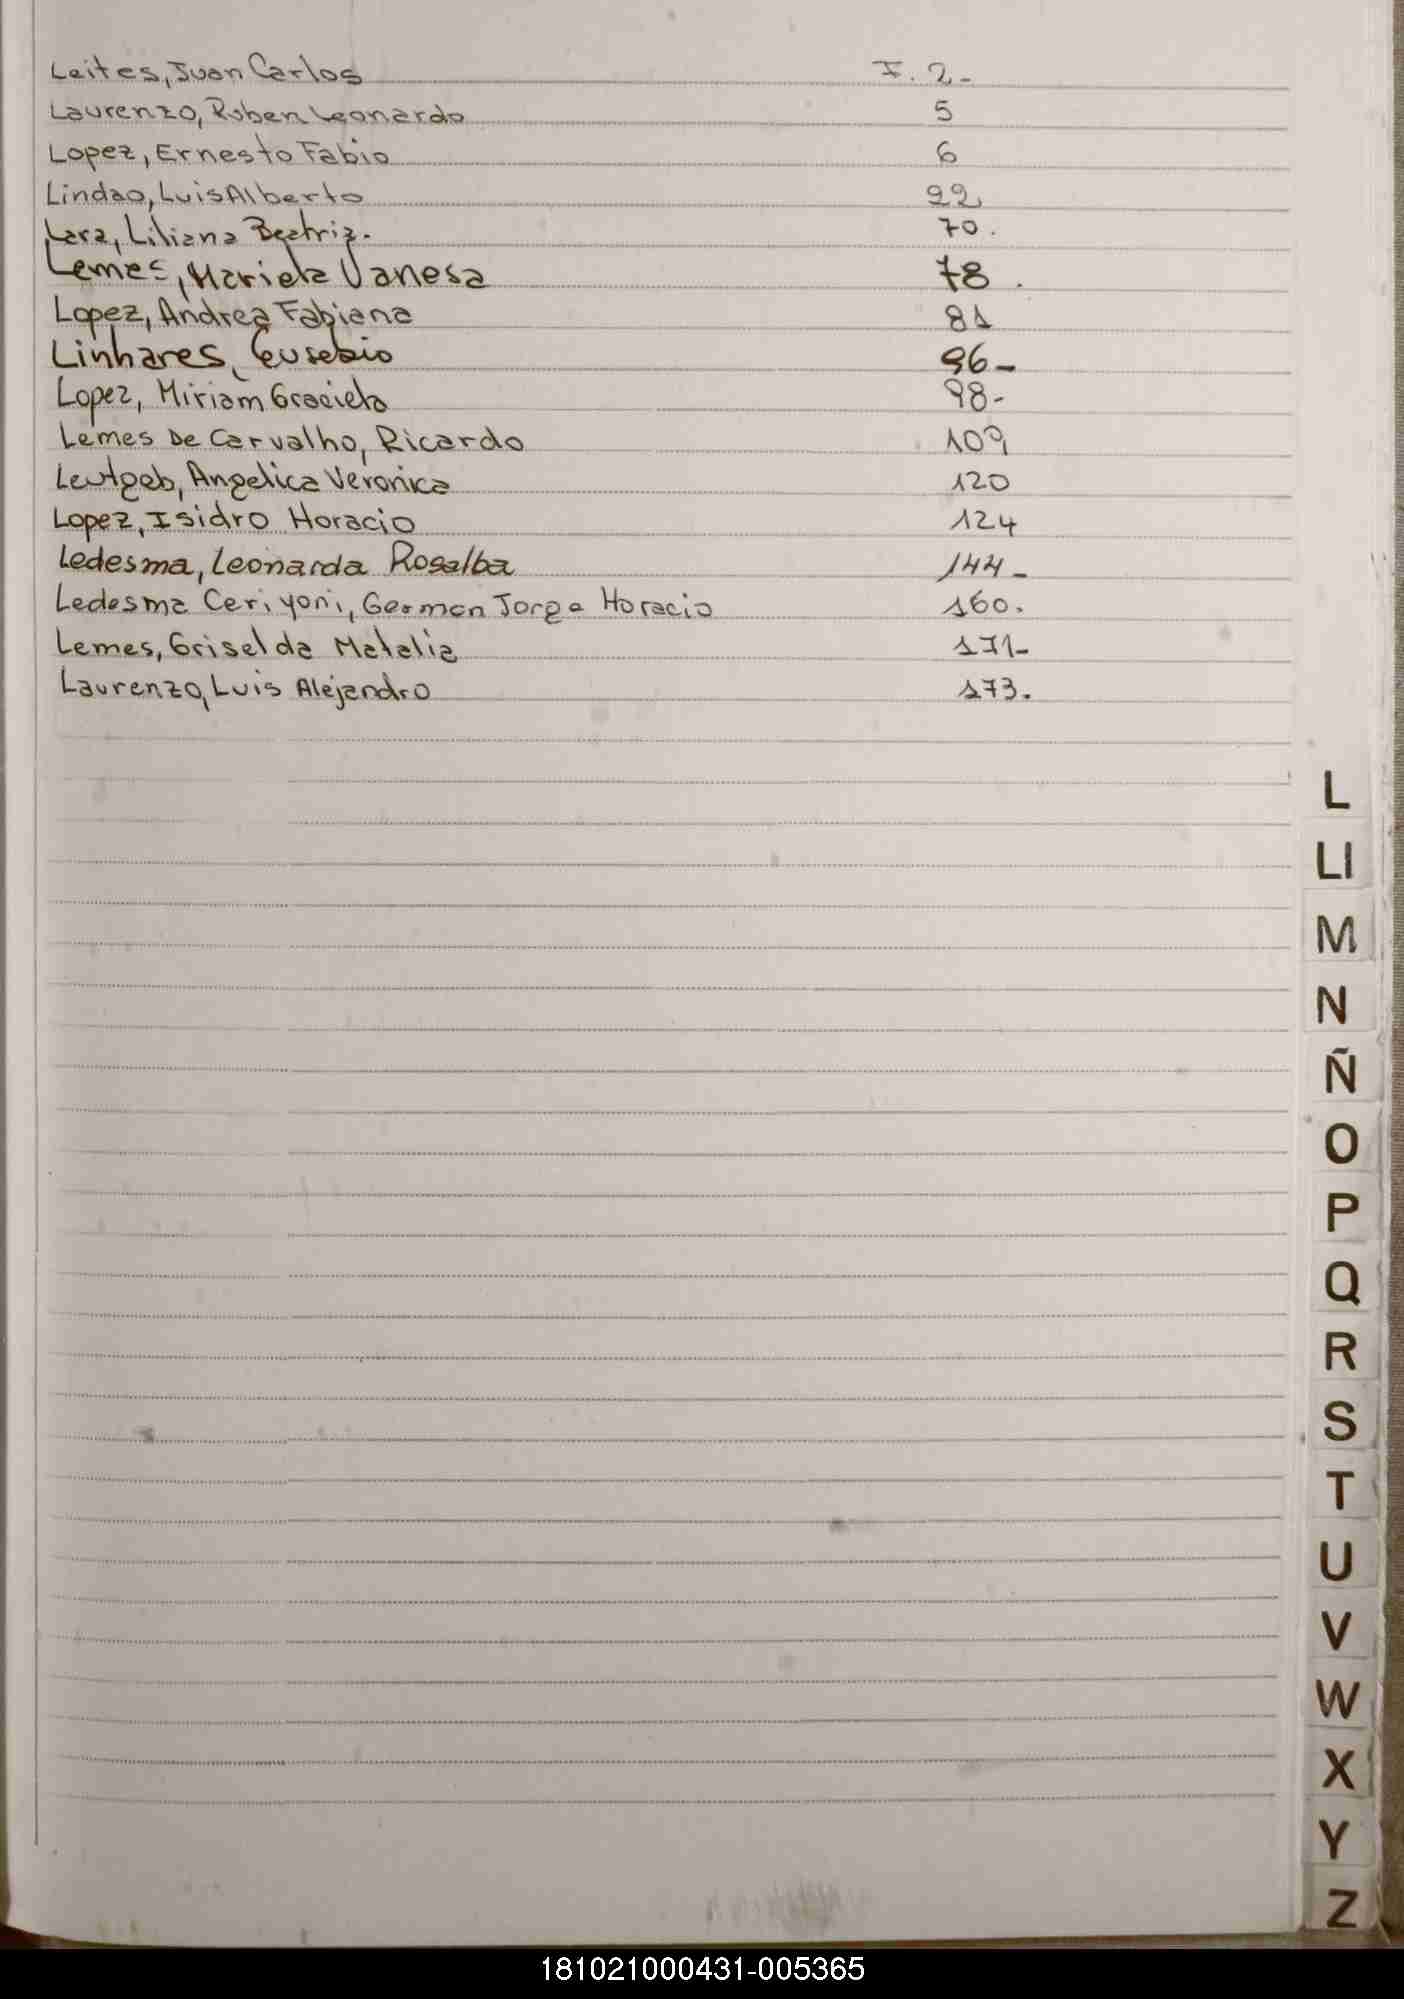 Leites, Juan Carlos F. 2-
Laurenzo, Ruben Leonardo 5
Lopez, Ernesto Fabio 6
Lindao, Luis Alberto 22
Lara, Liliana Beatriz. 70.
Lemes, Mariela Vanesa 78.
Lopez, Andrea Fabiana 81
Linhares, Eusebio 96-
Lopez, Miriam Graciela 98-
Lemes De Carvalho, Ricardo 109
Leutgeb, Angelica Veronica 120
Lopez, Isidro Horacio 124
Ledesma, Leonarda Rosalba 144-
Ledesma Ceriyoni, German Jorge Horacio 160.
Lemes, Griselda Natalia 171-
Laurenzo, Luis Alejandro 173.
L
Ll
M
N
Ñ
O
P
Q
R
S
T
U
V
W
X
Y
Z
181021000431-005365